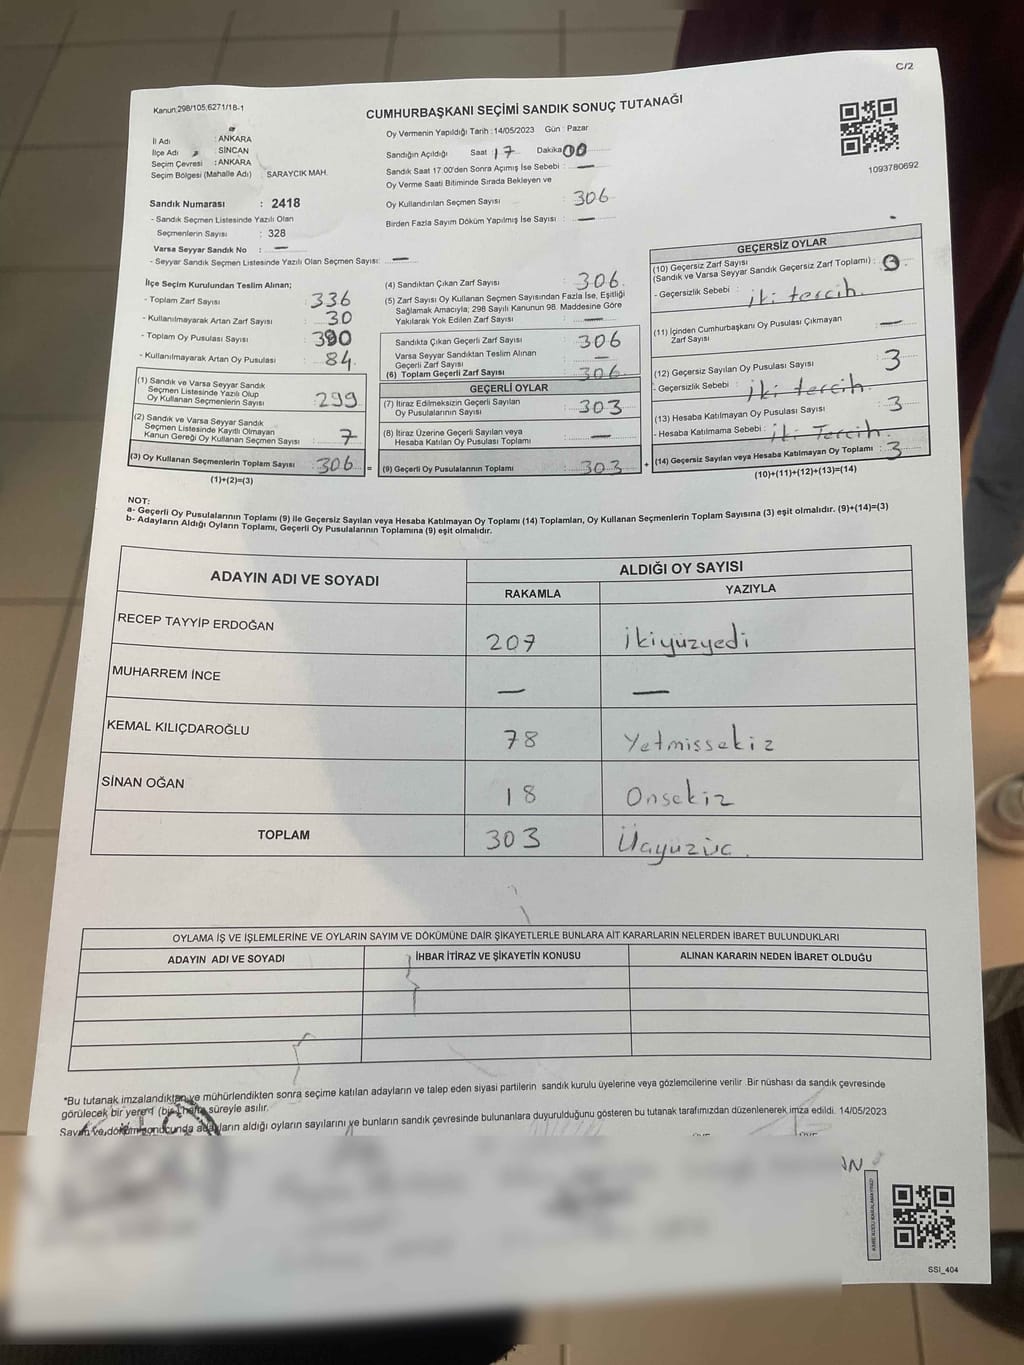 C/2
Kanun:298/105;6271/18-1
CUMHURBAŞKANI SEÇİMİ SANDIK SONUÇ TUTANAĞI
1093780692
İl Adı : ANKARA
İlçe Adı : SİNCAN
Seçim Çevresi : ANKARA
Seçim Bölgesi (Mahalle Adı) : SARAYCIK MAH.
Sandık Numarası : 2418
- Sandık Seçmen Listesinde Yazılı Olan
Seçmenlerin Sayısı : 328
Varsa Seyyar Sandık No : —
- Seyyar Sandık Seçmen Listesinde Yazılı Olan Seçmen Sayısı: —
Oy Vermenin Yapıldığı Tarih : 14/05/2023 Gün : Pazar
Sandığın Açıldığı Saat : 17 Dakika : 00
Sandık Saat 17.00'den Sonra Açımış İse Sebebi : —
Oy Verme Saati Bitiminde Sırada Bekleyen ve
Oy Kullandırılan Seçmen Sayısı : 306
Birden Fazla Sayım Döküm Yapılmış İse Sayısı : —
İlçe Seçim Kurulundan Teslim Alınan;
- Toplam Zarf Sayısı : 336
- Kullanılmayarak Artan Zarf Sayısı : 30
- Toplam Oy Pusulası Sayısı : 390
- Kullanılmayarak Artan Oy Pusulası : 84
(1) Sandık ve Varsa Seyyar Sandık
Seçmen Listesinde Yazılı Olup
Oy Kullanan Seçmenlerin Sayısı : 299
(2) Sandık ve Varsa Seyyar Sandık
Seçmen Listesinde Kayıtlı Olmayan
Kanun Gereği Oy Kullanan Seçmen Sayısı : 7
(3) Oy Kullanan Seçmenlerin Toplam Sayısı : 306 =
(1)+(2)=(3)
(4) Sandıktan Çıkan Zarf Sayısı : 306
(5) Zarf Sayısı Oy Kullanan Seçmen Sayısından Fazla İse, Eşitliği
Sağlamak Amacıyla; 298 Sayılı Kanunun 98. Maddesine Göre
Yakılarak Yok Edilen Zarf Sayısı : —
Sandıkta Çıkan Geçerli Zarf Sayısı : 306
Varsa Seyyar Sandıktan Teslim Alınan
Geçerli Zarf Sayısı : —
(6) Toplam Geçerli Zarf Sayısı : 306
GEÇERLİ OYLAR
(7) İtiraz Edilmeksizin Geçerli Sayılan
Oy Pusulalarının Sayısı : 303
(8) İtiraz Üzerine Geçerli Sayılan veya
Hesaba Katılan Oy Pusulası Toplamı : —
(9) Geçerli Oy Pusulalarının Toplamı : 303 +
GEÇERSİZ OYLAR
(10) Geçersiz Zarf Sayısı
(Sandık ve Varsa Seyyar Sandık Geçersiz Zarf Toplamı) : 0
- Geçersizlik Sebebi : iki tercih.
(11) İçinden Cumhurbaşkanı Oy Pusulası Çıkmayan
Zarf Sayısı : —
(12) Geçersiz Sayılan Oy Pusulası Sayısı : 3
- Geçersizlik Sebebi : iki tercih.
(13) Hesaba Katılmayan Oy Pusulası Sayısı : 3
- Hesaba Katılmama Sebebi : iki Tercih.
(14) Geçersiz Sayılan veya Hesaba Katılmayan Oy Toplamı : 3
(10)+(11)+(12)+(13)=(14)
NOT:
a- Geçerli Oy Pusulalarının Toplamı (9) ile Geçersiz Sayılan veya Hesaba Katılmayan Oy Toplamı (14) Toplamları, Oy Kullanan Seçmenlerin Toplam Sayısına (3) eşit olmalıdır. (9)+(14)=(3)
b- Adayların Aldığı Oyların Toplamı, Geçerli Oy Pusulalarının Toplamına (9) eşit olmalıdır.
ADAYIN ADI VE SOYADI ALDIĞI OY SAYISI
RAKAMLA YAZIYLA
RECEP TAYYİP ERDOĞAN 207 ikiyüzyedi
MUHARREM İNCE — —
KEMAL KILIÇDAROĞLU 78 Yetmissekiz
SİNAN OĞAN 18 Onsekiz
TOPLAM 303 Üçyüzüc.
OYLAMA İŞ VE İŞLEMLERİNE VE OYLARIN SAYIM VE DÖKÜMÜNE DAİR ŞİKAYETLERLE BUNLARA AİT KARARLARIN NELERDEN İBARET BULUNDUKLARI
ADAYIN ADI VE SOYADI İHBAR İTİRAZ VE ŞİKAYETİN KONUSU ALINAN KARARIN NEDEN İBARET OLDUĞU
*Bu tutanak imzalandıktan ve mühürlendikten sonra seçime katılan adayların ve talep eden siyasi partilerin sandık kurulu üyelerine veya gözlemcilerine verilir. Bir nüshası da sandık çevresinde
görülecek bir yere 1 (bir) hafta süreyle asılır.
Sayım ve döküm sonucunda adayların aldığı oyların sayılarını ve bunların sandık çevresinde bulunanlara duyurulduğunu gösteren bu tutanak tarafımızdan düzenlenerek imza edildi. 14/05/2023
SSI_404